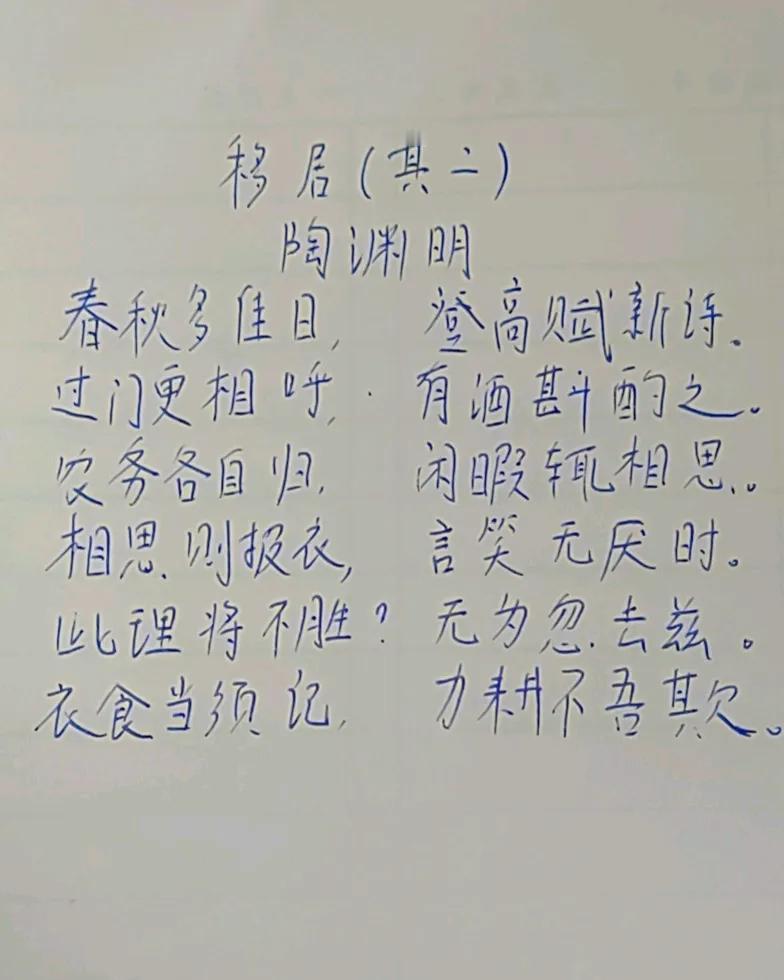 移居(其二)
陶渊明
春秋多佳日, 登高赋新诗。
过门更相呼, 有酒斟酌之。
农务各自归, 闲暇辄相思。
相思则报衣, 言笑无厌时。
此理将不胜? 无为忽去兹。
衣食当须记, 力耕不吾欺。